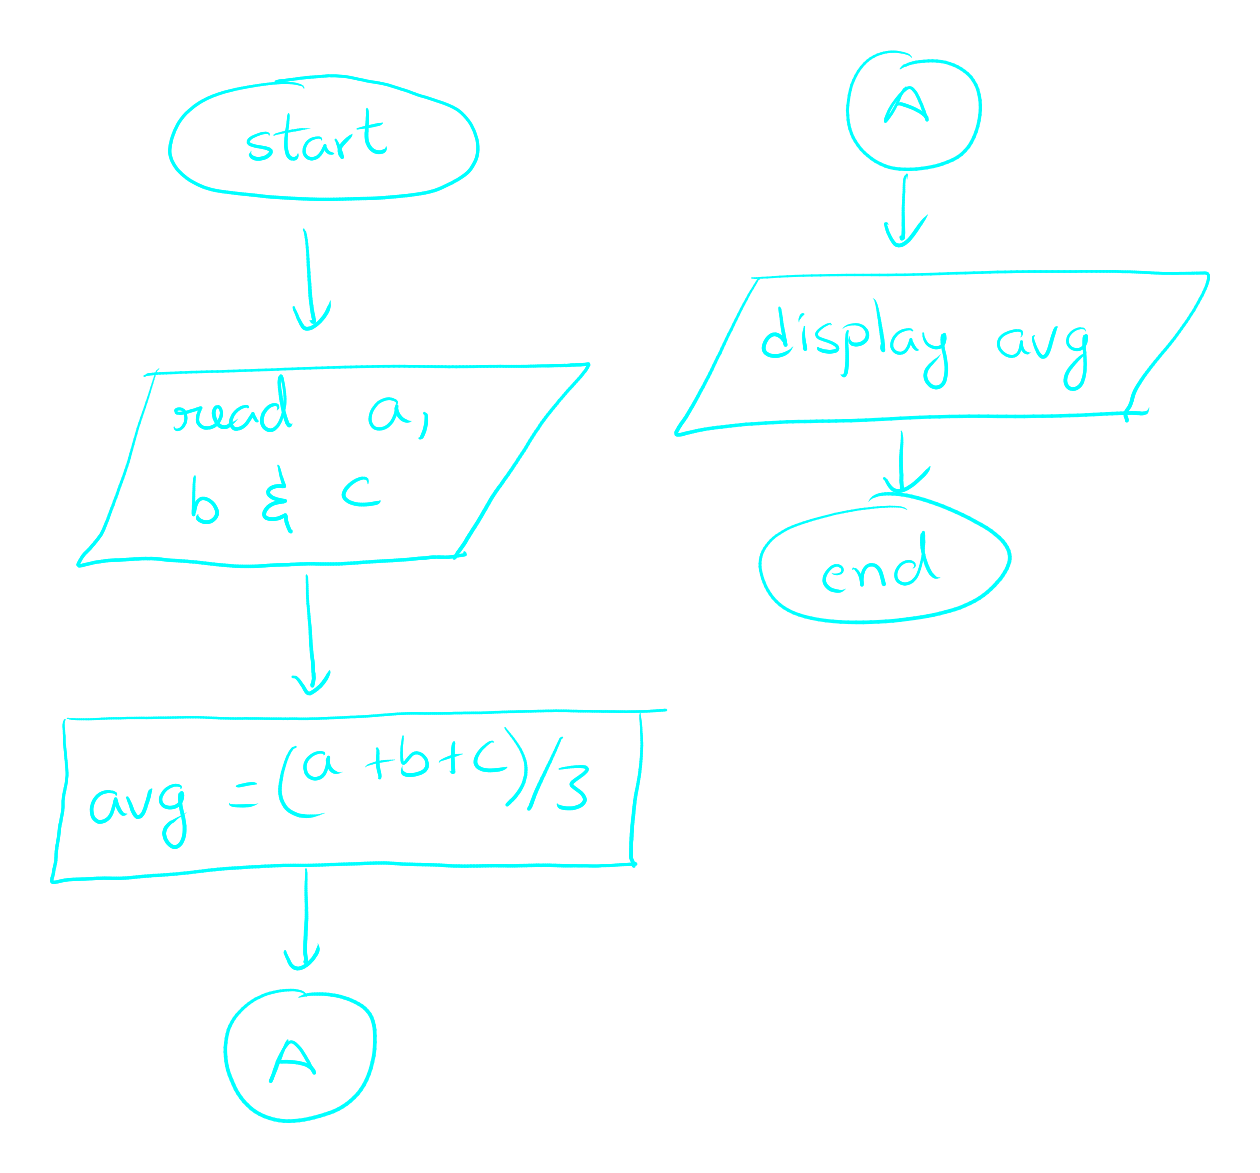 start
read a,
b & c
avg = (a+b+c)/3
A
A
display avg
end